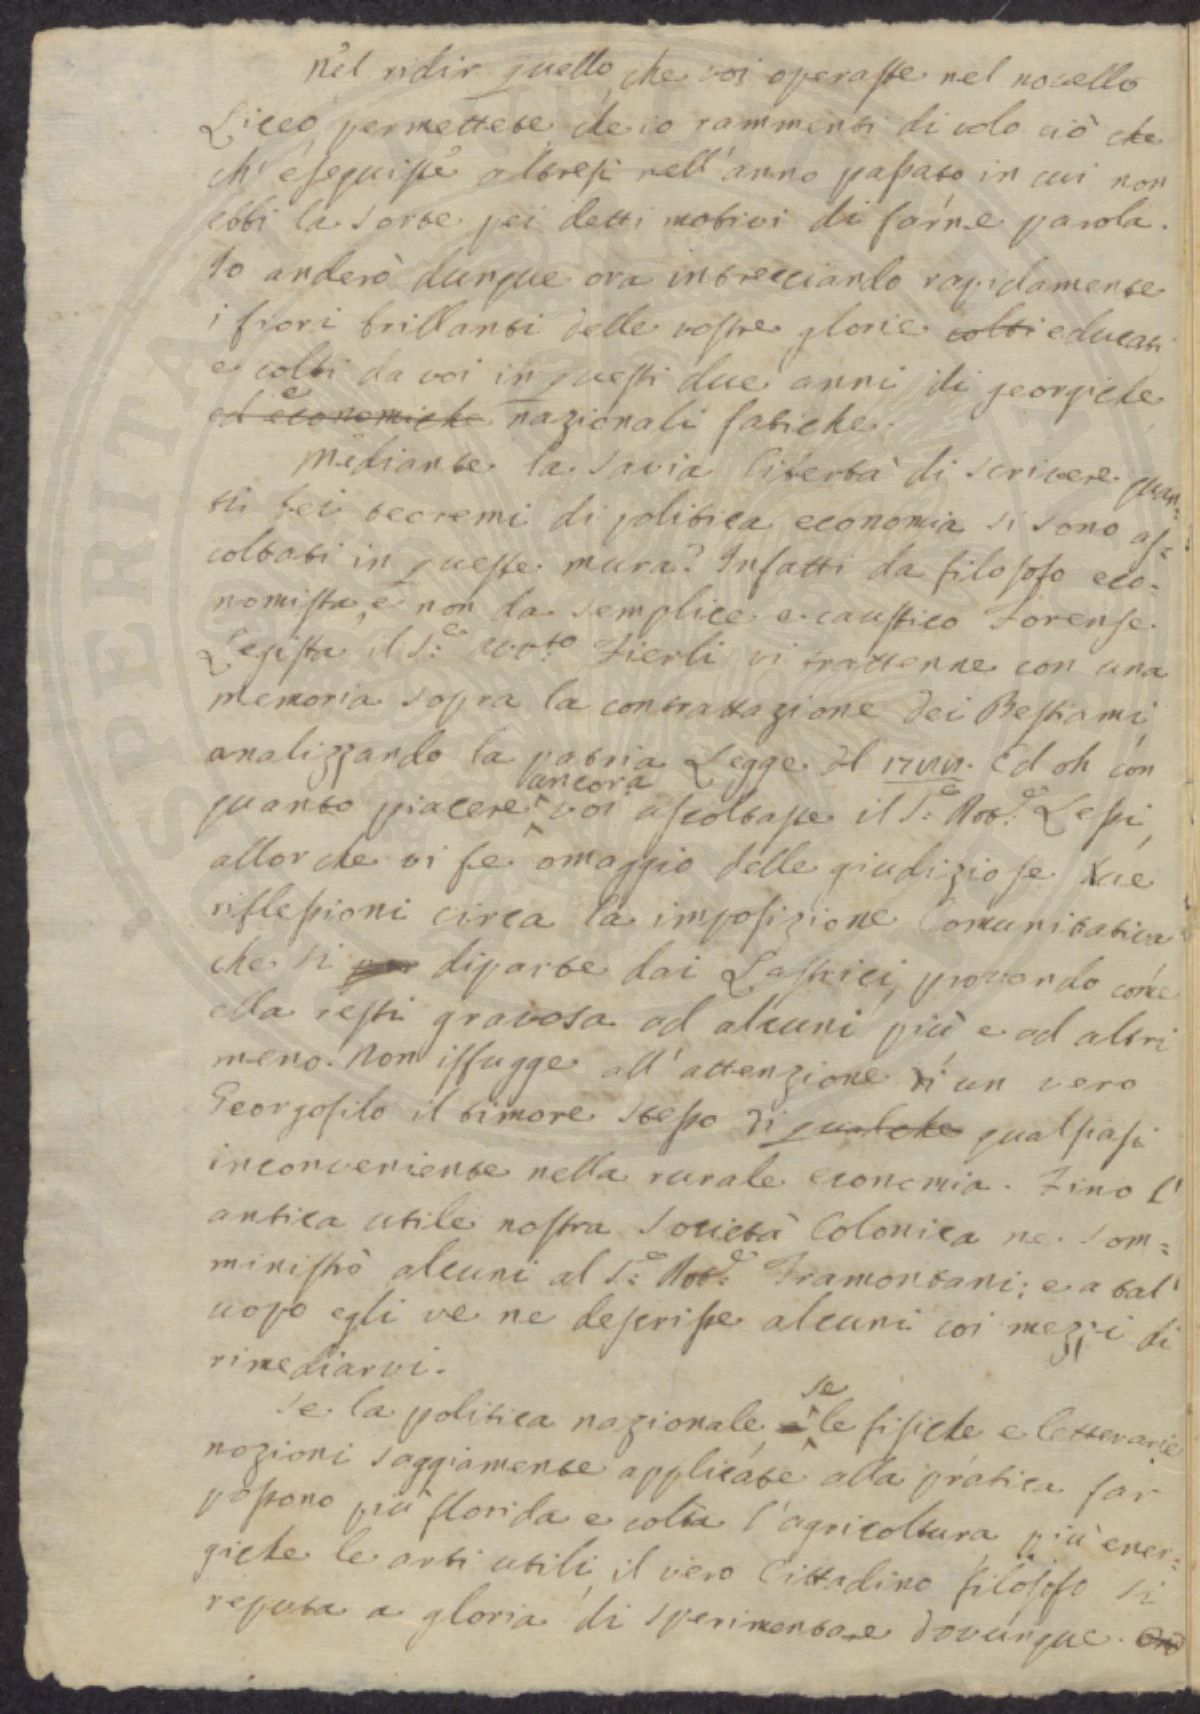 Nel ridir quello, che voi operaste nel novello
Liceo, permettete che io rammenti di volo ciò che
ch' eseguiste altresì nell'anno passato in cui non
ebbi la sorte pei detti motivi di farne parola.
Io anderò dunque ora intrecciando rapidamente
i fiori brillanti delle vostre glorie colti educati
e colti da voi in questi due anni di georgiche
e
ed economiche nazionali fatiche.
Mediante la savia libertà di scrivere quan=
ti bei teoremi di politica economia si sono as=
coltati in queste mura? Infatti da filosofo eco=
nomista, e non da semplice e caustico Forense
Legista il S.e Avv.to Fierli vi trattenne con una
memoria sopra la contrattazione dei Bestiami,
analizzando la patria Legge del Ed oh con
ancora
quanto piacere voi ascoltaste il S.e Lessi,
allor che vi fe omaggio delle giudiziose sue
riflessioni circa la imposizione Comunitativa
che si diparte dai Lastrici, provando come
ella resti gravosa ad alcuni più e ad altri
meno. Non isfugge all'attenzione di un vero
Georgofilo il timore stesso di qualche qualsiasi
inconveniente nella rurale economia. Fino l'
antica utile nostra Società Colonica ne som=
ministrò alcuni al S.e Tramontani; e a tal'
uopo egli ve ne descrisse alcuni coi mezzi di
rimediarvi.
se
Se la politica nazionale, le fisiche e letterarie
nozioni saggiamente applicate alla pratica far
possono più florida e colta l'agricoltura, più ener=
giche le arti utili, il vero Cittadino filosofo si
reputa a gloria di sperimentare dovunque.